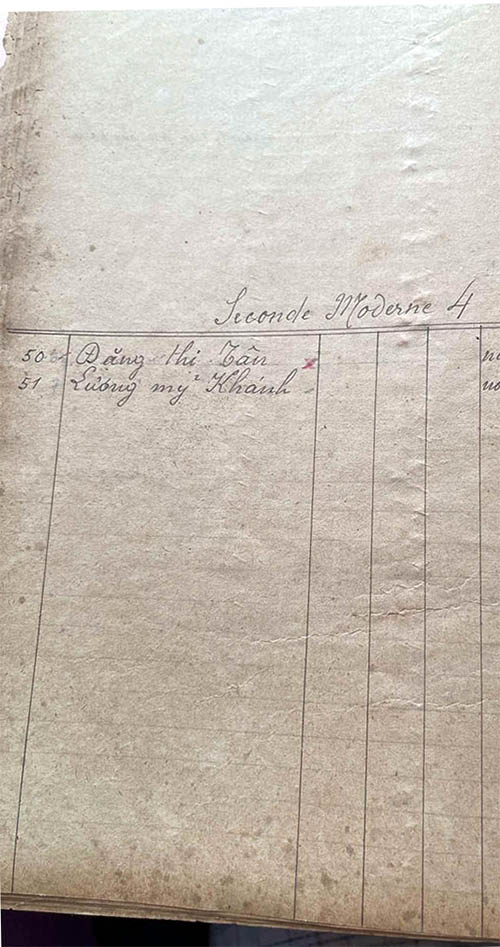 Seconde Moderne 4
50 Đặng thị Tân
51 Lương mỹ Khánh